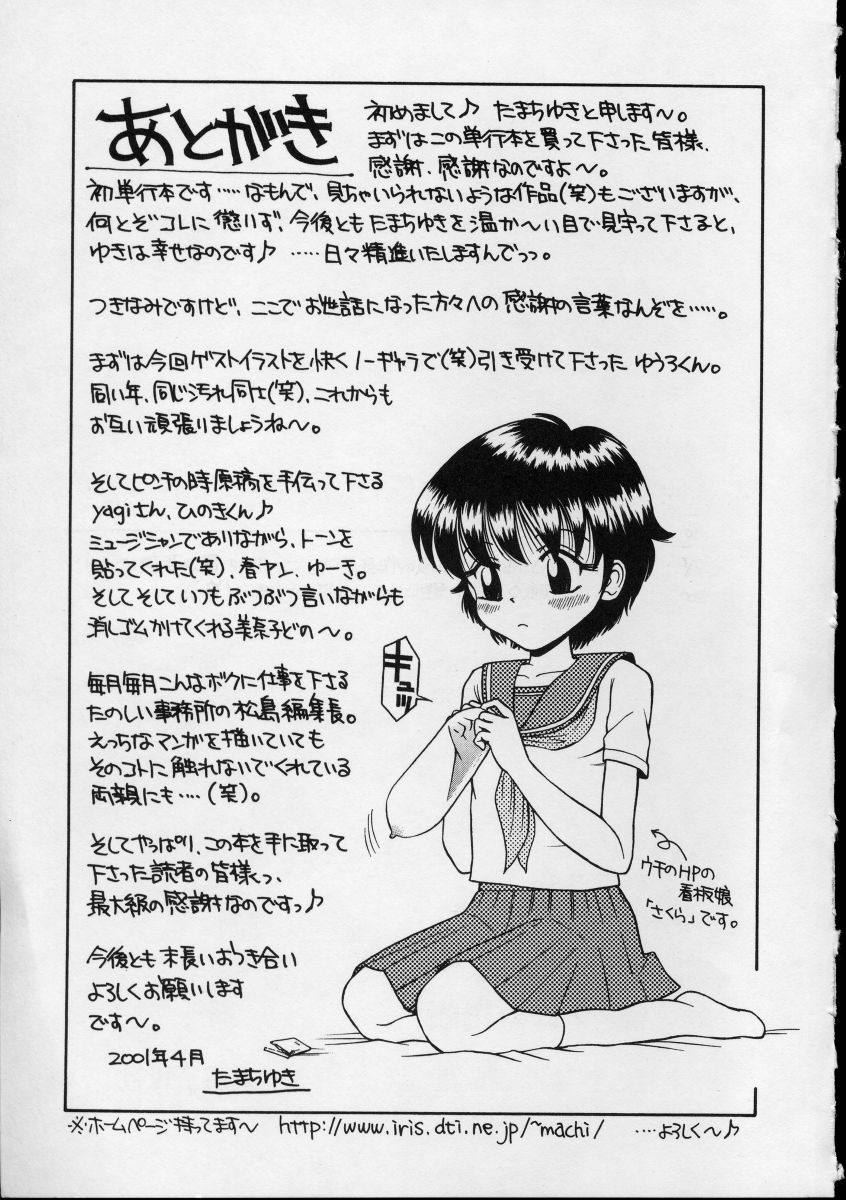 あとがき
初めまして♪ たまちゆきと申します〜。
まずはこの単行本を買って下さった皆様、
感謝、感謝なのですよ〜。
初単行本です‥‥なもんで、見ちゃいられないような作品(笑)もございますが、
何とぞコレに懲りず、今後ともたまちゆきを温か〜い目で見守って下さると、
ゆきは幸せなのです♪ ‥‥日々精進いたしますんでっっ。
つきなみですけど、ここでお世話になった方々への感謝の言葉なんぞを‥‥。
まずは今回ゲストイラストを快くノーギャラで(笑)引き受けて下さったゆうろくん。
同い年、同じ汚れ同士(笑)、これからも
お互い頑張りましょうね〜。
そしてピンチの時原稿を手伝って下さる
yagiさん、ひのきくん♪
ミュージシャンでありながら、トーンを
貼ってくれた(笑)、春ヤン、ゆーき。
そしてそしていつもぶつぶつ言いながらも
消しゴムかけてくれる美奈子どの〜。
毎月毎月こんなボクに仕事を下さる
たのしい事務所の松島編集長。
えっちなマンガを描いていても
そのコトに触れないでくれている
両親にも‥‥(笑)。
そしてやっぱり、この本を手に取って
下さった読者の皆様っ、
最大級の感謝なのですっ♪
今後とも末長いおつき合い
よろしくお願いします
です〜。
2001年4月
たまちゆき
キュッ
ウチのHPの
看板娘
「さくら」です。
※ホームページ持ってます〜 http://www.iris.dti.ne.jp/~machi/ ‥‥よろしく〜♪